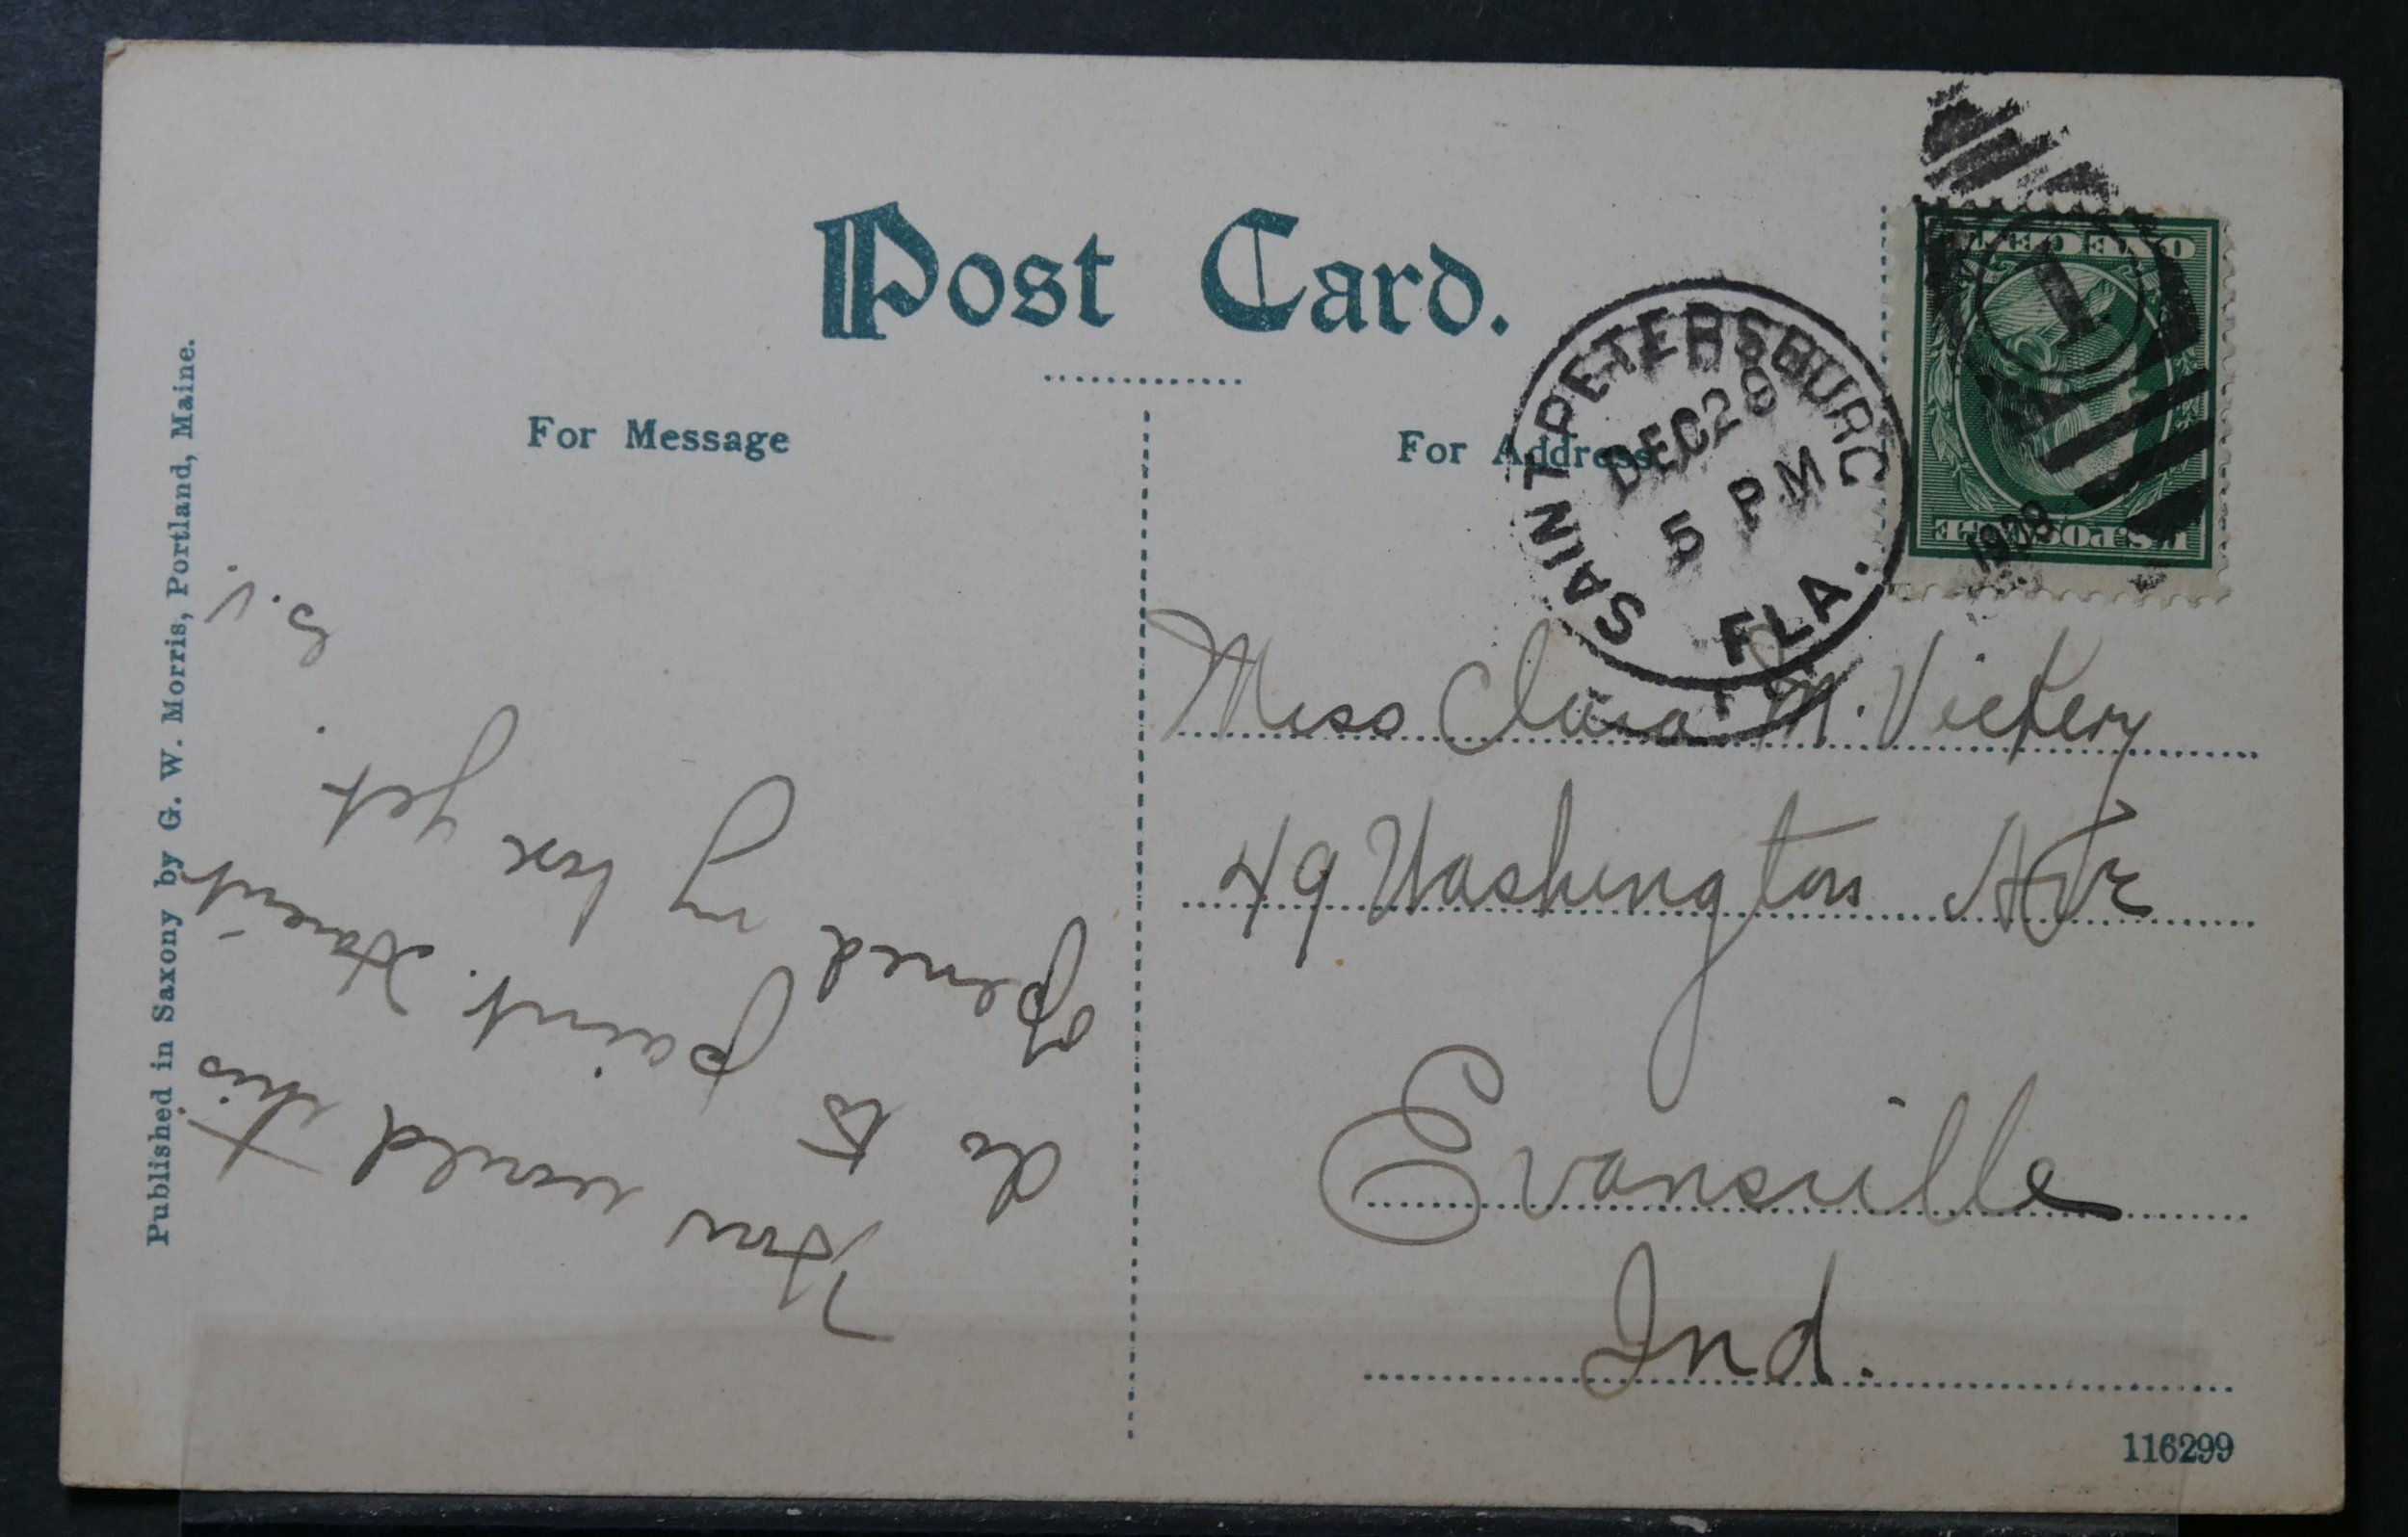 Post Card.
For Message
For Address
SAINT PETERSBURG
DEC 28
5 PM
FLA.
1908
ONE CENT
1
U.S. POSTAGE
Miss Clara M. Vickery
49 Washington Ave
Evansville
Ind.
116299
How would this
do to paint. Havent
opened my box yet.
S.V.
Published in Saxony by G. W. Morris, Portland, Maine.